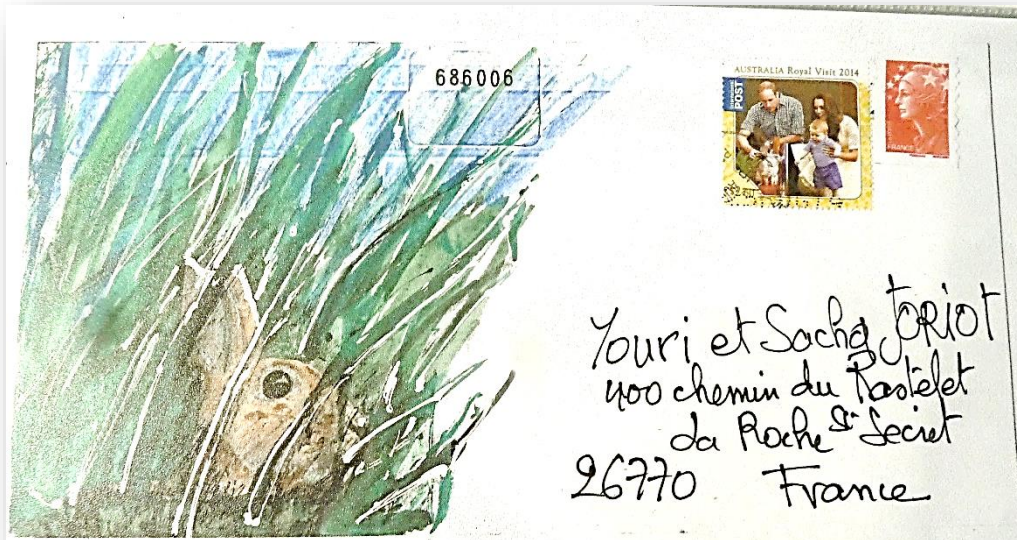 686006
AUSTRALIA Royal Visit 2014
POST
FRANCE
Youri et Sacha TORIOT
400 chemin du Rastelet
La Roche St Secret
26770 France